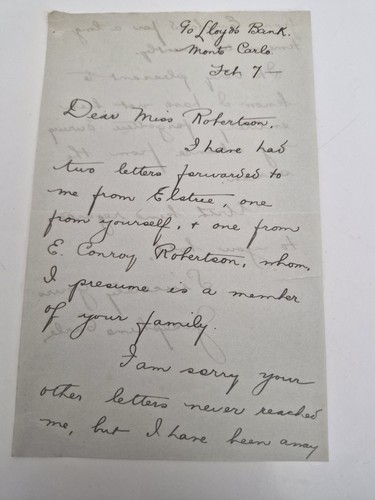 c/o Lloyds Bank.
Monte Carlo.
Feb 7 —
Dear Miss Robertson,
I have had
two letters forwarded to
me from Elstree, one
from yourself, + one from
E. Conroy Robertson, whom,
I presume is a member
of your family.
I am sorry your
other letters never reached
me, but I have been away